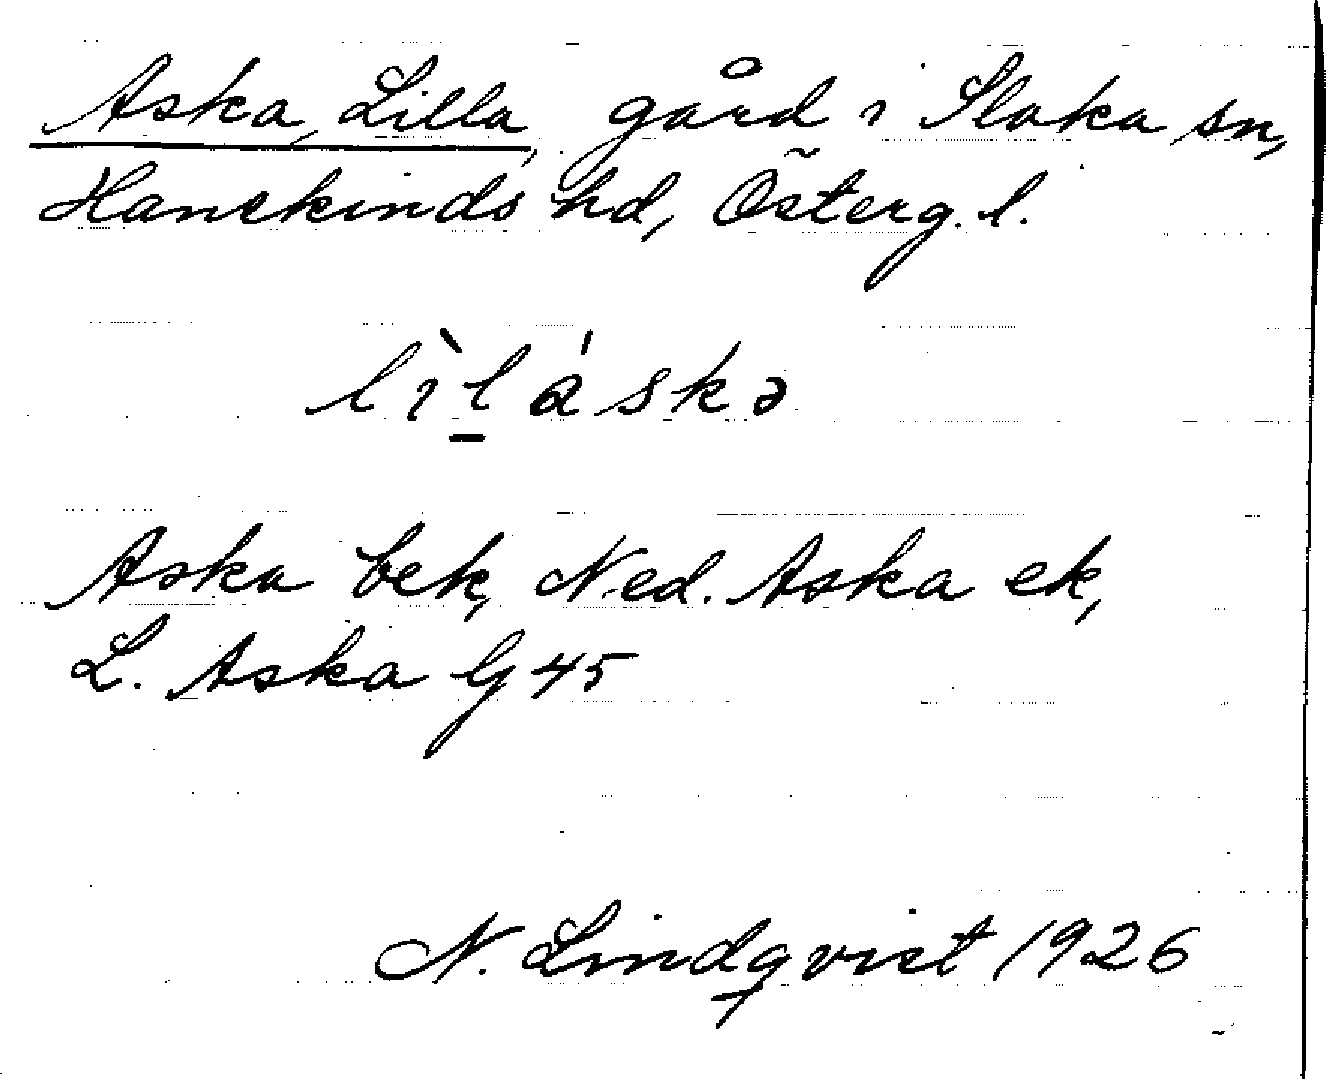 Aska, Lilla, gård i Slaka sn,
Hanekinds hd, Österg. l.
lìl̲áskə
Aska bek, Ned. Aska ek,
L. Aska G 45
N. Lindqvist 1926